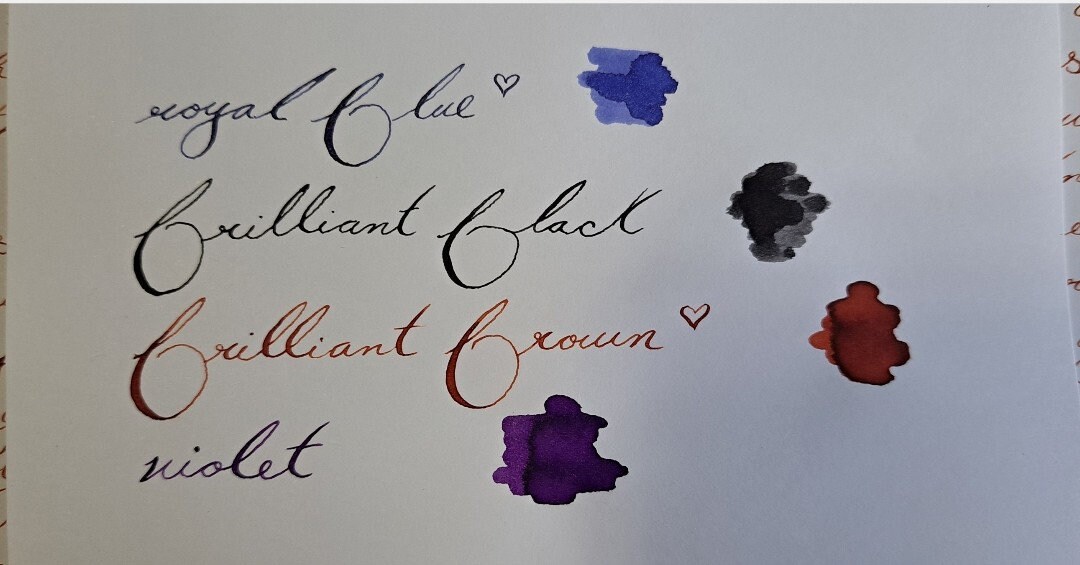 royal blue ♡
brilliant black
brilliant brown ♡
violet